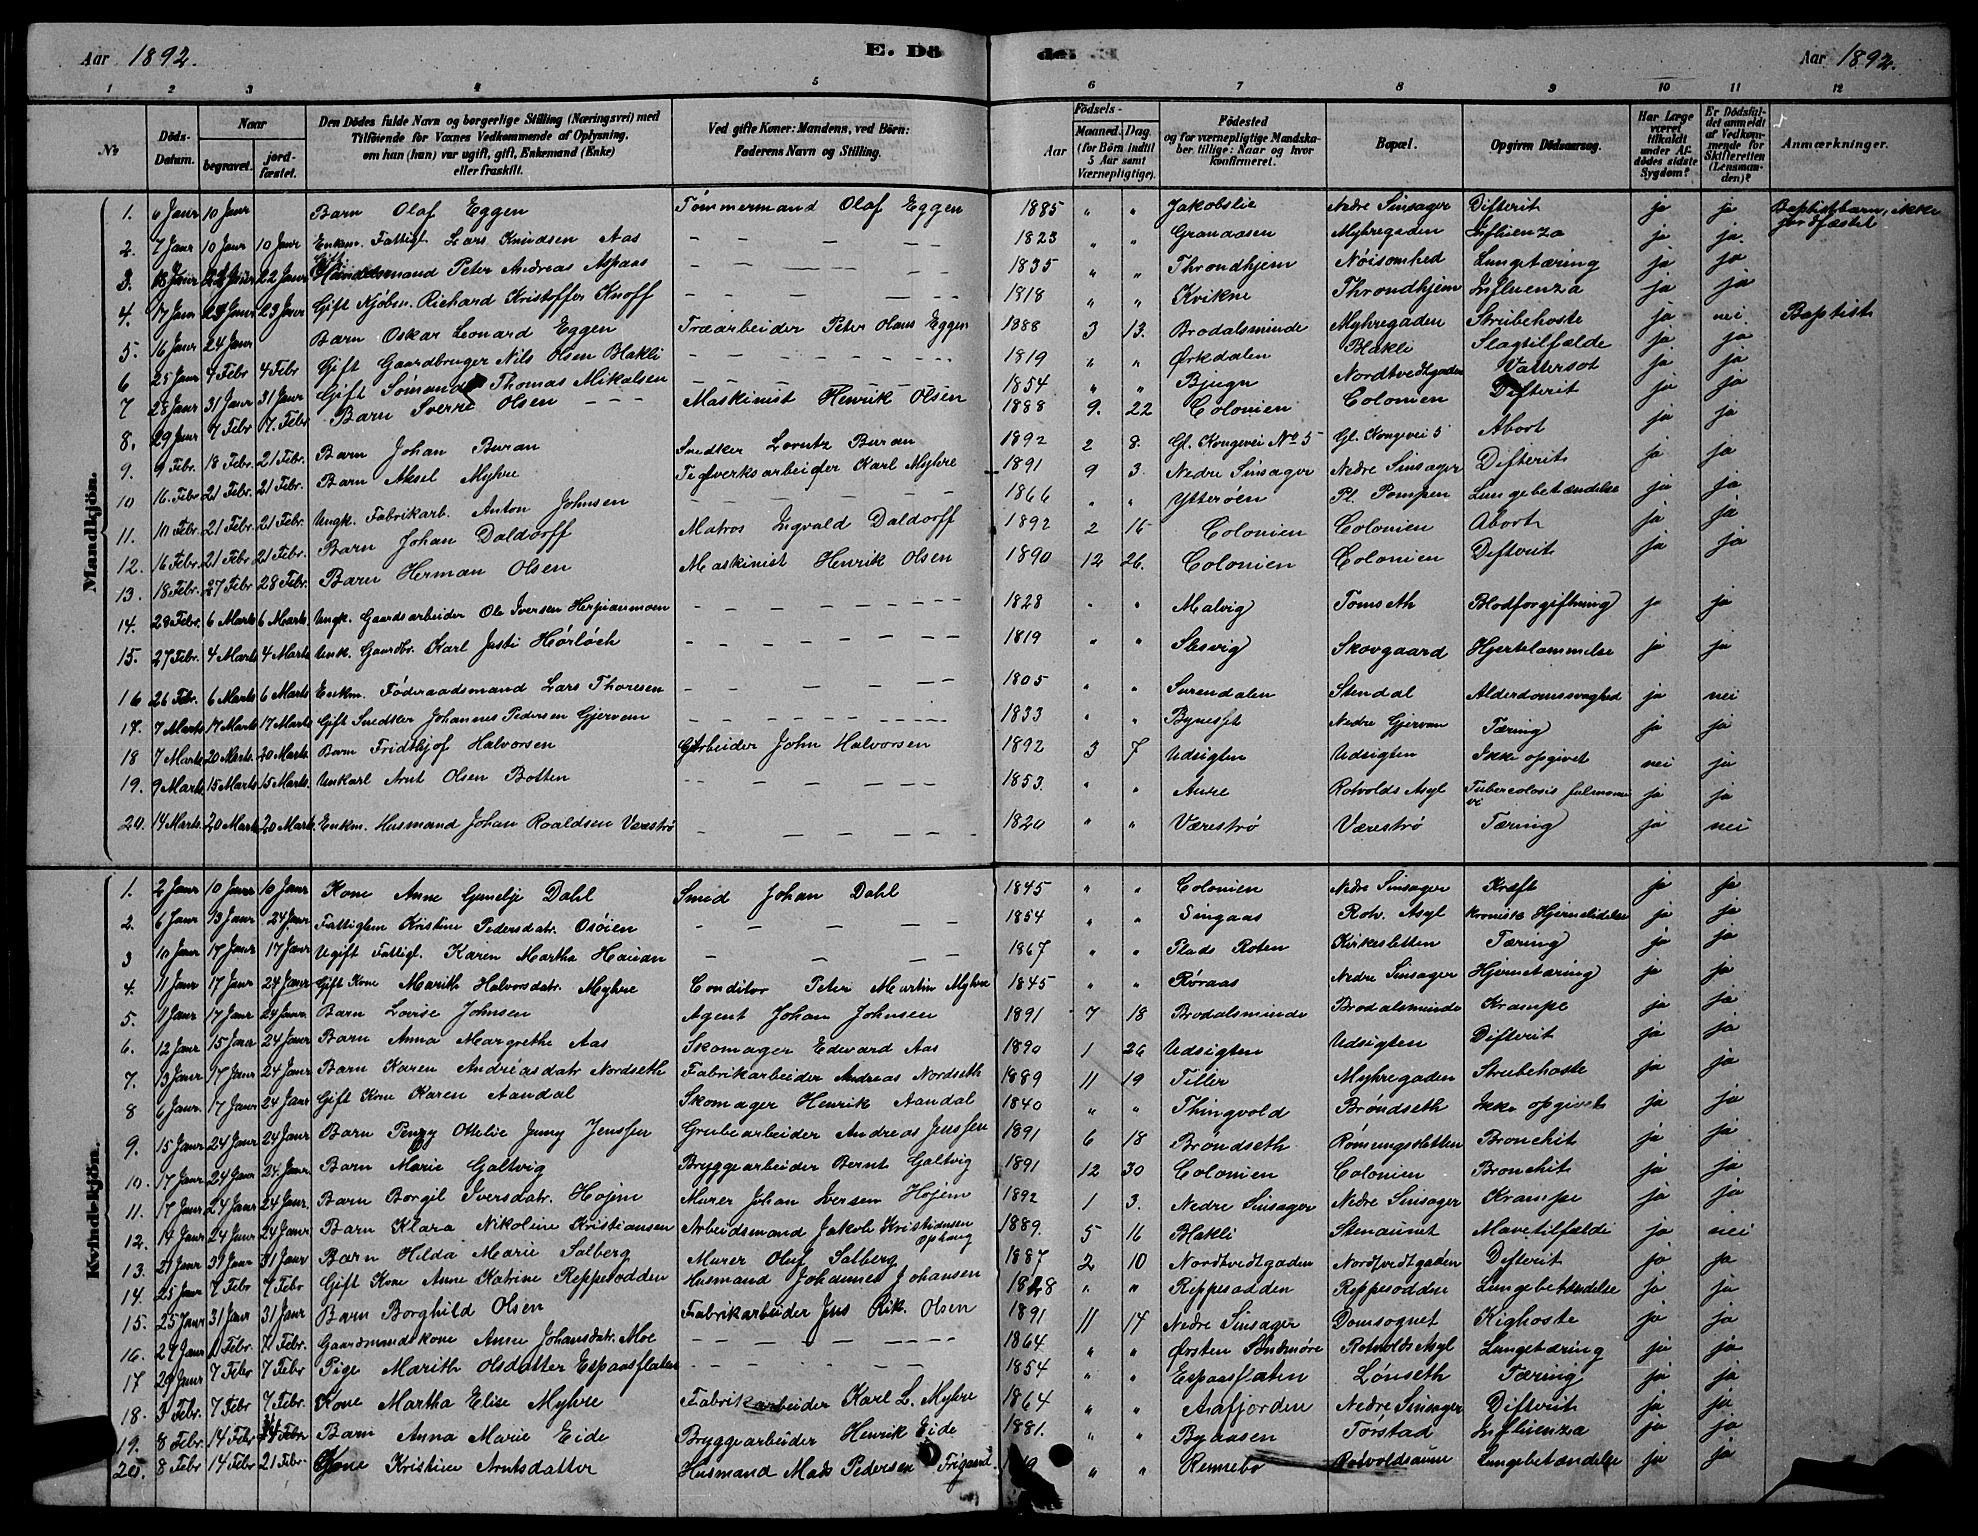 Aar 1892. E. Dö de. E. Aar 1892.
1 2 3 4 5 6 7 8 9 10 11 12
No Döds-Datum. Naar begravet. jordfæstet. Den Dödes fulde Navn og borgerlige Stilling (Næringsvei) med Tilföiende for Voxnes Vedkommende af Oplysning. om han (hun) var ugift, gift, Enkemand (Enke) eller fraskilt. Ved gifte Koner: Mandens, ved Börn: Faderens Navn og Stilling. Födsels- Aar Maaned. Dag. (for Börn indtil 5 Aar samt Værnepligtige). Födested og for værnepligtige Mandskaber tillige: Naar og hvor konfirmeret. Bopæl. Opgiven Dödsaarsag. Har Læge været tilkaldt under Afdödes sidste Sygdom? Er Dödsfaldet anmeldt af Vedkommende for Skifteretten (Lensmanden)? Anmærkninger.
Mandkjön.
1. 6 Janr 10 Janr Barn Olaf Eggen Tömmermand Olaf Eggen 1885 " " Jakobslie Nedre Sinsager Difterit ja ja Baptistbarn, ikke jordfæstet
2. 7 Janr 10 Janr 10 Janr Enkm. Fattigl. Lars Knudsen Aas – – – – – 1823 " " Granaasen Myhregaden Influenza ja ja.
3. 18 Janr 22 Janr 22 Janr Gift Handelsmand Peter Andreas Aspaas – – – – – 1835 " " Throndhjem Nöisomhed Lungetæring ja ja
4. 17 Janr 23 Janr 23 Janr Gift Kjöbm. Richard Kristoffer Knoff – – – – – 1818 " " Kvikne Throndhjem Influenza ja ja
5. 16 Janr 24 Janr Barn Oskar Leonard Eggen Træarbeider Peter Olaus Eggen 1888 3 13. Brodalsminde Myhregaden Strubehoste ja nei Baptist
6 25 Janr 4 Febr 4 Febr Gift Gaardbruger Nils Olsen Blakli – – – – – 1819 " " Ørkdalen Blakli Slagtilfælde ja ja
7 28 Janr 31 Janr 31 Janr Gift Sömand Thomas Mikalsen – – – – – 1854 " " Bjugn Nordtvedtgaden Vattersot ja ja
8. 29 Janr 7 Febr 7. Febr Barn Sverre Olsen – – – Maskinist Henrik Olsen 1888 9. 22 Colonien Colonien Difterit ja ja
9. 9 Febr. 18 Febr. 21 Febr. Barn Johan Buran Snedker Lorntz Buran 1892 2 8. Gl. Kongevei No 5 Gl. Kongevei 5 Abort ja ja
10 16. Febr 21 Febr. 21 Febr. Barn Aksel Myhre Teglverksarbeider Karl Myhre 1891 9 3. Nedre Sinsager Nedre Sinsager Difterit ja ja
11. 10 Febr. 21 Febr. 21 Febr. Ungk. Fabrikarb. Anton Johnsen – – – – – 1866 " " Ytteröen Pl. Pompen Lungebetændelse ja ja
12. 16 Febr. 21 Febr 21 Febr. Barn Johan Daldorff Matros Ingvald Daldorff 1892 2 16 Colonien Colonien Abort ja ja
13. 18 Febr. 27 Febr 28 Febr. Barn Herman Olsen Maskinist Henrik Olsen 1890 12 26. Colonien Colonien Difterit ja ja
14. 28 Febr. 6 Marts 6 Marts. Ungk. Gaardsarbeider Ole Iversen Herjuanmoen – – – – – 1828 " " Malvig Tomseth Blodforgiftning ja ja
15. 27 Febr. 4 Marts 4 Marts Unk. Gaardbr. Karl Justi Hörlöch – – – – – 1819 " " Slesvig Skovgaard Hjertelammelse ja ja
16 26 Febr. 6 Marts 6 Marts Enkm. Föderaadsmand Lars Thoresen – – – – – 1805 " " Surendalen Stendal Alderdomssvaghed ja nei
17. 7 Marts 17 Marts 17 Marts Gift Snedker Johannes Pedersen Gjervan – – – – – 1833 " " Bynesset Nedre Gjervan Tæring ja ja
18 7 Marts 20 Marts. 20 Marts. Barn Fridthjof Halvorsen Arbeider John Halvorsen 1892 3 7 Udsigten Udsigten Ikke opgivet nei ja
19. 9 Marts. 15 Marts 15 Marts. Unkarl Arnt Olsen Botten – – – – – 1853. " " Aure Rotvolds Asyl Tubercolosis ja ja
20. 14 Marts. 20 Marts 20 Marts. Enkm. Husmand Johan Roaldsen Værestrø – – – – – 1820 " " Værestrø Værestrø Tæring ja nei
Kvindekjön.
1. 2 Janr 10 Janr 10 Janr Kone Anne Gunelje Dahl Smed Johan Dahl 1845 " " Colonien Nedre Sinsager Kræft ja ja
2. 6 Janr 13 Janr 24 Janr Fattiglem Kristine Pedersdatr. Osöien – – – – 1854 " " Singsaas Rotv. Asyl kroniske Hjernelidelse ja ja
3 10 Janr 17 Janr 17 Janr Ugift Fattigl. Karen Martha Hauan – – – – 1867 " " Plads Roten Kirkesletten Tæring ja ja
4. 11 Janr 17 Janr 24 Janr Gift Kone Marith Halvorsdatr. Myhre Conditor Peter Martin Myhre 1845 " " Röraas Nedre Sinsager Hjernetæring ja ja
5. 11 Janr 17 Janr 24 Janr. Barn Lovise Johnsen Agent Johan Johnsen 1891 7 18 Brodalsminde Brodalsminde Krampe ja ja
6. 12 Janr 15 Janr 24 Janr Barn Anna Margrethe Aas Skomager Edevard Aas 1890 1 26 Udsigten Udsigten Difterit ja ja
7. 13 Janr 17 Janr 24 Janr Barn Karen Andreasdatr Nordseth Fabrikarbeider Andreas Nordseth 1889 11 19 Tiller Myhregaden Strubehoste ja ja
8 6 Janr. 17 Janr 24 Janr Gift Kone Karen Aandal Skomager Henrik Aandal 1840 " " Thingvold Bröndseth Ikke opgivet ja ja
9. 15 Janr 24 Janr 24 Janr Barn Penzy Ottelie Jenny Jenssen Grubearbeider Andreas Jenssen 1891 6 18 Bröndseth Römungsletten Bronchit ja ja
10. 17 Janr. 24 Janr 24 Janr. Barn Marie Galtvig Bryggearbeider Bernt Galtvig 1891 12 30 Colonien Colonien Bronchit ja ja
11. 17 Janr 24 Janr 24 Janr Barn Borgil Iversdatr. Hojem Murer Johan Iversen Hojem 1892 1 3. Nedre Sinsager Nedre Sinsager Krampe ja ja
12. 14 Janr 24 Janr 24 Janr Barn Klara Nikoline Kristiansen Arbeidsmand Jakob Kristiansen Ophaug 1889. 5 16 Blakli Stenaunet Mavetilfælde ja nei
13. 21 Janr 31 Janr 31 Janr Barn Hilda Marie Salberg Murer Oluf Salberg 1887 2 10 Nordtvedtgaden Nordtvedtgaden Difterit ja ja
14. 25 Janr 7 Febr 7 Febr Gift Kone Anne Katrine Reppesodden Husmand Johannes Johansen 1828 " " Reppesodden Reppesodden Lungebetændelse ja ja
15. 25 Janr 31 Janr 31 Janr Barn Borghild Olsen Fabrikarbeider Jens Rik. Olsen 1891 11 14 Nedre Sinsager Domsognet Kighoste ja ja
16. 27 Janr Febr. 7 Febr. Gaardmandskone Anne Johansdatr. Moe – – – – – 1864. " " Ørsten Söndmöre Rotvolds Asyl Lungetæring ja ja
17 29 Janr 7 Febr 7 Febr Pige Marith Olsdatter Espaasflaten – – – – – 1854 " " Espaasflaten Lönseth Tæring ja ja
18. 3 Febr. 7 Febr 7 Febr. Kone Martha Elise Myhre Fabrikarbeider Karl L. Myhre 1864 " " Aafjorden Nedre Sinsager Difterit ja ja
19. 8 Febr. 14 Febr 14 Febr Barn Anna Marie Eide Bryggearbeider Henrik Eide 1881. " " Byaasen Törstad Influenza ja ja
20. 8 Febr 14 Febr 21 Febr. Kone Kristine Arntsdatter Husmand Mads Pedersen " " Rennebo Rotvoldsaunn Lungebetændelse ja ja